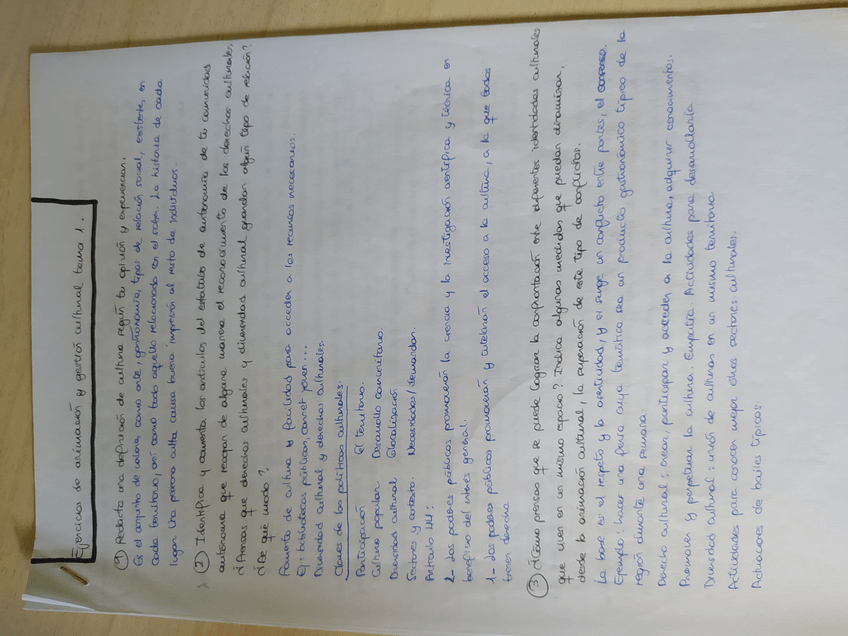 Ejercicios de animación y gestión cultural tema 1.
① Redacta una definición de cultura según tu opinión y experiencia.
Es el conjunto de valores, como arte, gastronomía, tipos de relación social, existente, en
cada territorio, así como todo aquello relacionado en el saber. La historia de cada
lugar. Una persona culta causa buena impresión al resto de individuos.
② Identifica y comenta los artículos del estatuto de autonomía de tu comunidad
autónoma que recogen de alguna manera el reconocimiento de los derechos culturales,
¿Piensas que derechos culturales y diversidad cultural guardan algún tipo de relación?
¿De qué modo?
Fomento de cultura y facilidad para acceder a los recursos necesarios.
Ej: bibliotecas públicas, carnet joven...
Diversidad cultural y derechos culturales.
Claves de las políticas culturales:
Participación El territorio.
Cultura popular Desarrollo comunitario.
Diversidad cultural Glocalización
Sectores y contexto. Necesidades/demandas.
Artículo 44:
2- Los poderes públicos promoverán la ciencia y la investigación científica y técnica en
beneficio del interés general.
1- Los poderes públicos promoverán y tutelarán el acceso a la cultura, a la que todos
tienen derecho
③ ¿Cómo piensas que se puede lograr la confrontación entre diferentes identidades culturales
que viven en un mismo espacio? Indica algunas medidas que puedan dinamizar,
desde la animación cultural, la superación de este tipo de conflictos.
La base es el respeto y la asertividad, y si surge un conflicto entre partes, el consenso.
Ejemplo: hacer una feria cuya temática sea un producto gastronómico típico de la
región durante una semana.
Derecho cultural: crear, participar y acceder a la cultura, adquirir conocimientos.
Promover y perpetuar la cultura. Empatía. Actividades para desarrollarla
Diversidad cultural: unión de culturas en un mismo territorio.
Actividades para conocer mejor otros sectores culturales.
Actuaciones de bailes típicos.